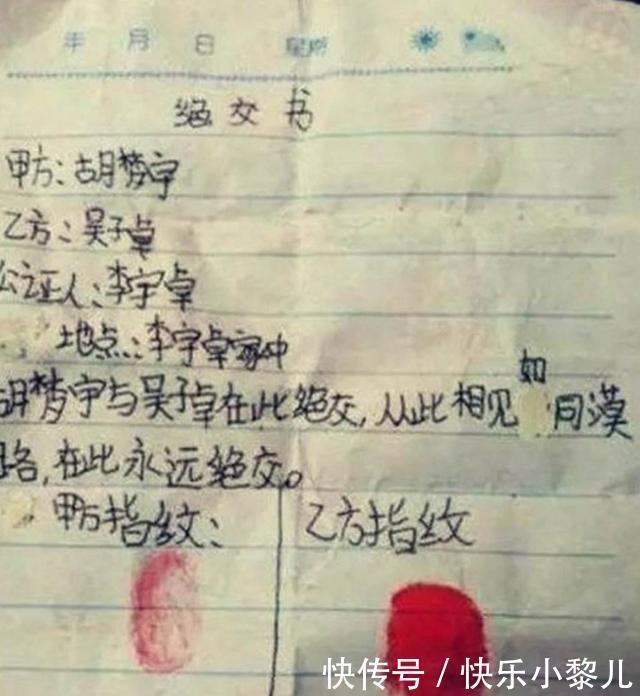 年 月 日 星期
绝交书
甲方:胡梦宇
乙方:吴子卓
公证人:李宇卓
地点:李宇卓家中
胡梦宇与吴子卓在此绝交,从此相见如同漠
路,在此永远绝交。
甲方指纹: 乙方指纹
快传号 / 快乐小黎儿